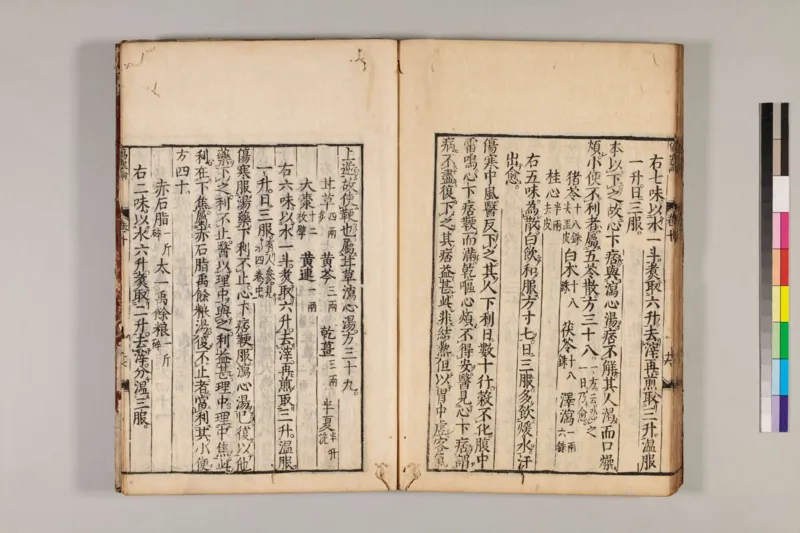 右七味以水一斗煑取六升去滓再煎取三升温服
一升日三服
本以下之故心下痞與瀉心湯痞不解其人渴而口燥
煩小便不利者屬五苓散方三十八
猪苓十八銖去黑皮 白木十八銖 茯苓十八銖 澤瀉一兩六銖
桂心半兩去皮
右五味為散白飲和服方寸匕日三服多飲煖水汗
出愈
傷寒中風醫反下之其人下利日數十行穀不化腹中
雷鳴心下痞鞕而滿乾嘔心煩不得安醫見心下痞謂
病不盡復下之其痞益甚此非結熱但以胃中虛客氣
上逆故使鞕也屬甘草瀉心湯方三十九
甘草四兩 黄芩三兩 乾薑三兩 半夏半升洗
大棗十二枚擘 黄連一兩
右六味以水一斗煑取六升去滓再煎取三升温服
一升日三服
傷寒服湯藥下利不止心下痞鞕服瀉心湯已復以他
藥下之利不止醫以理中與之利益甚理中理中焦此
利在下焦屬赤石脂禹餘粮湯復不止者當利其小便
方四十
赤石脂一斤碎 太一禹餘粮一斤碎
右二味以水六升煑取二升去滓分温三服